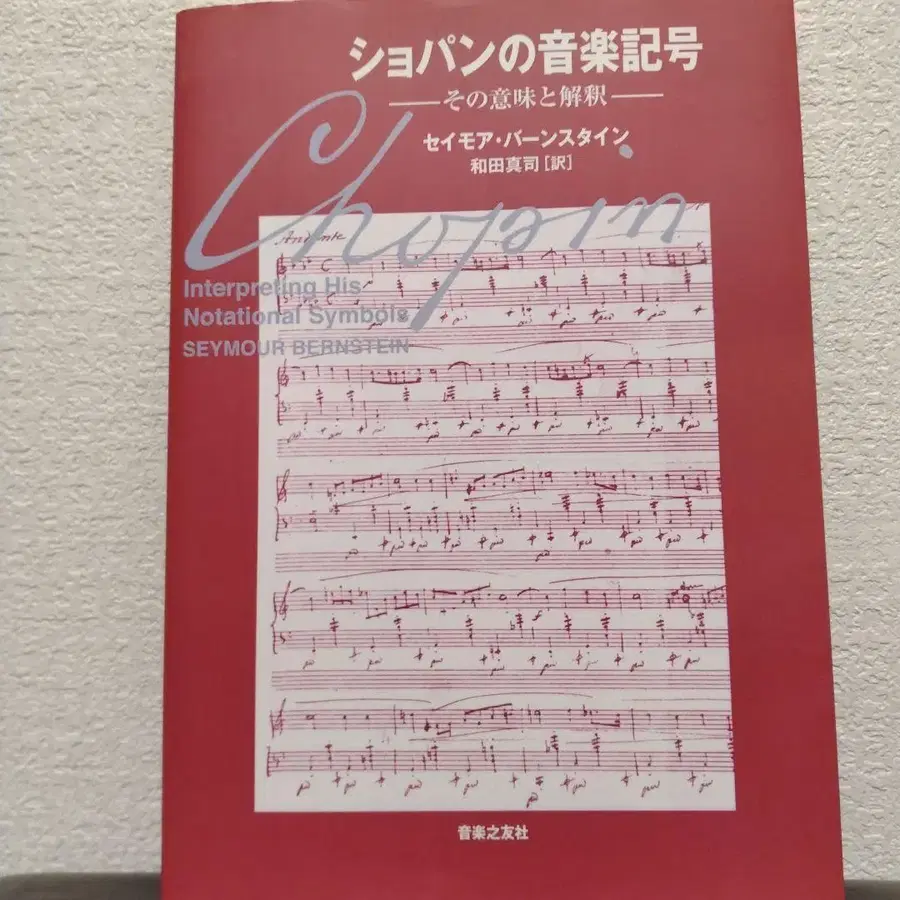 ショパンの音楽記号
―その意味と解釈―
セイモア・バーンスタイン
和田真司[訳]
Chopin
Andante
Interpreting His
Notational Symbols
SEYMOUR BERNSTEIN
音楽之友社